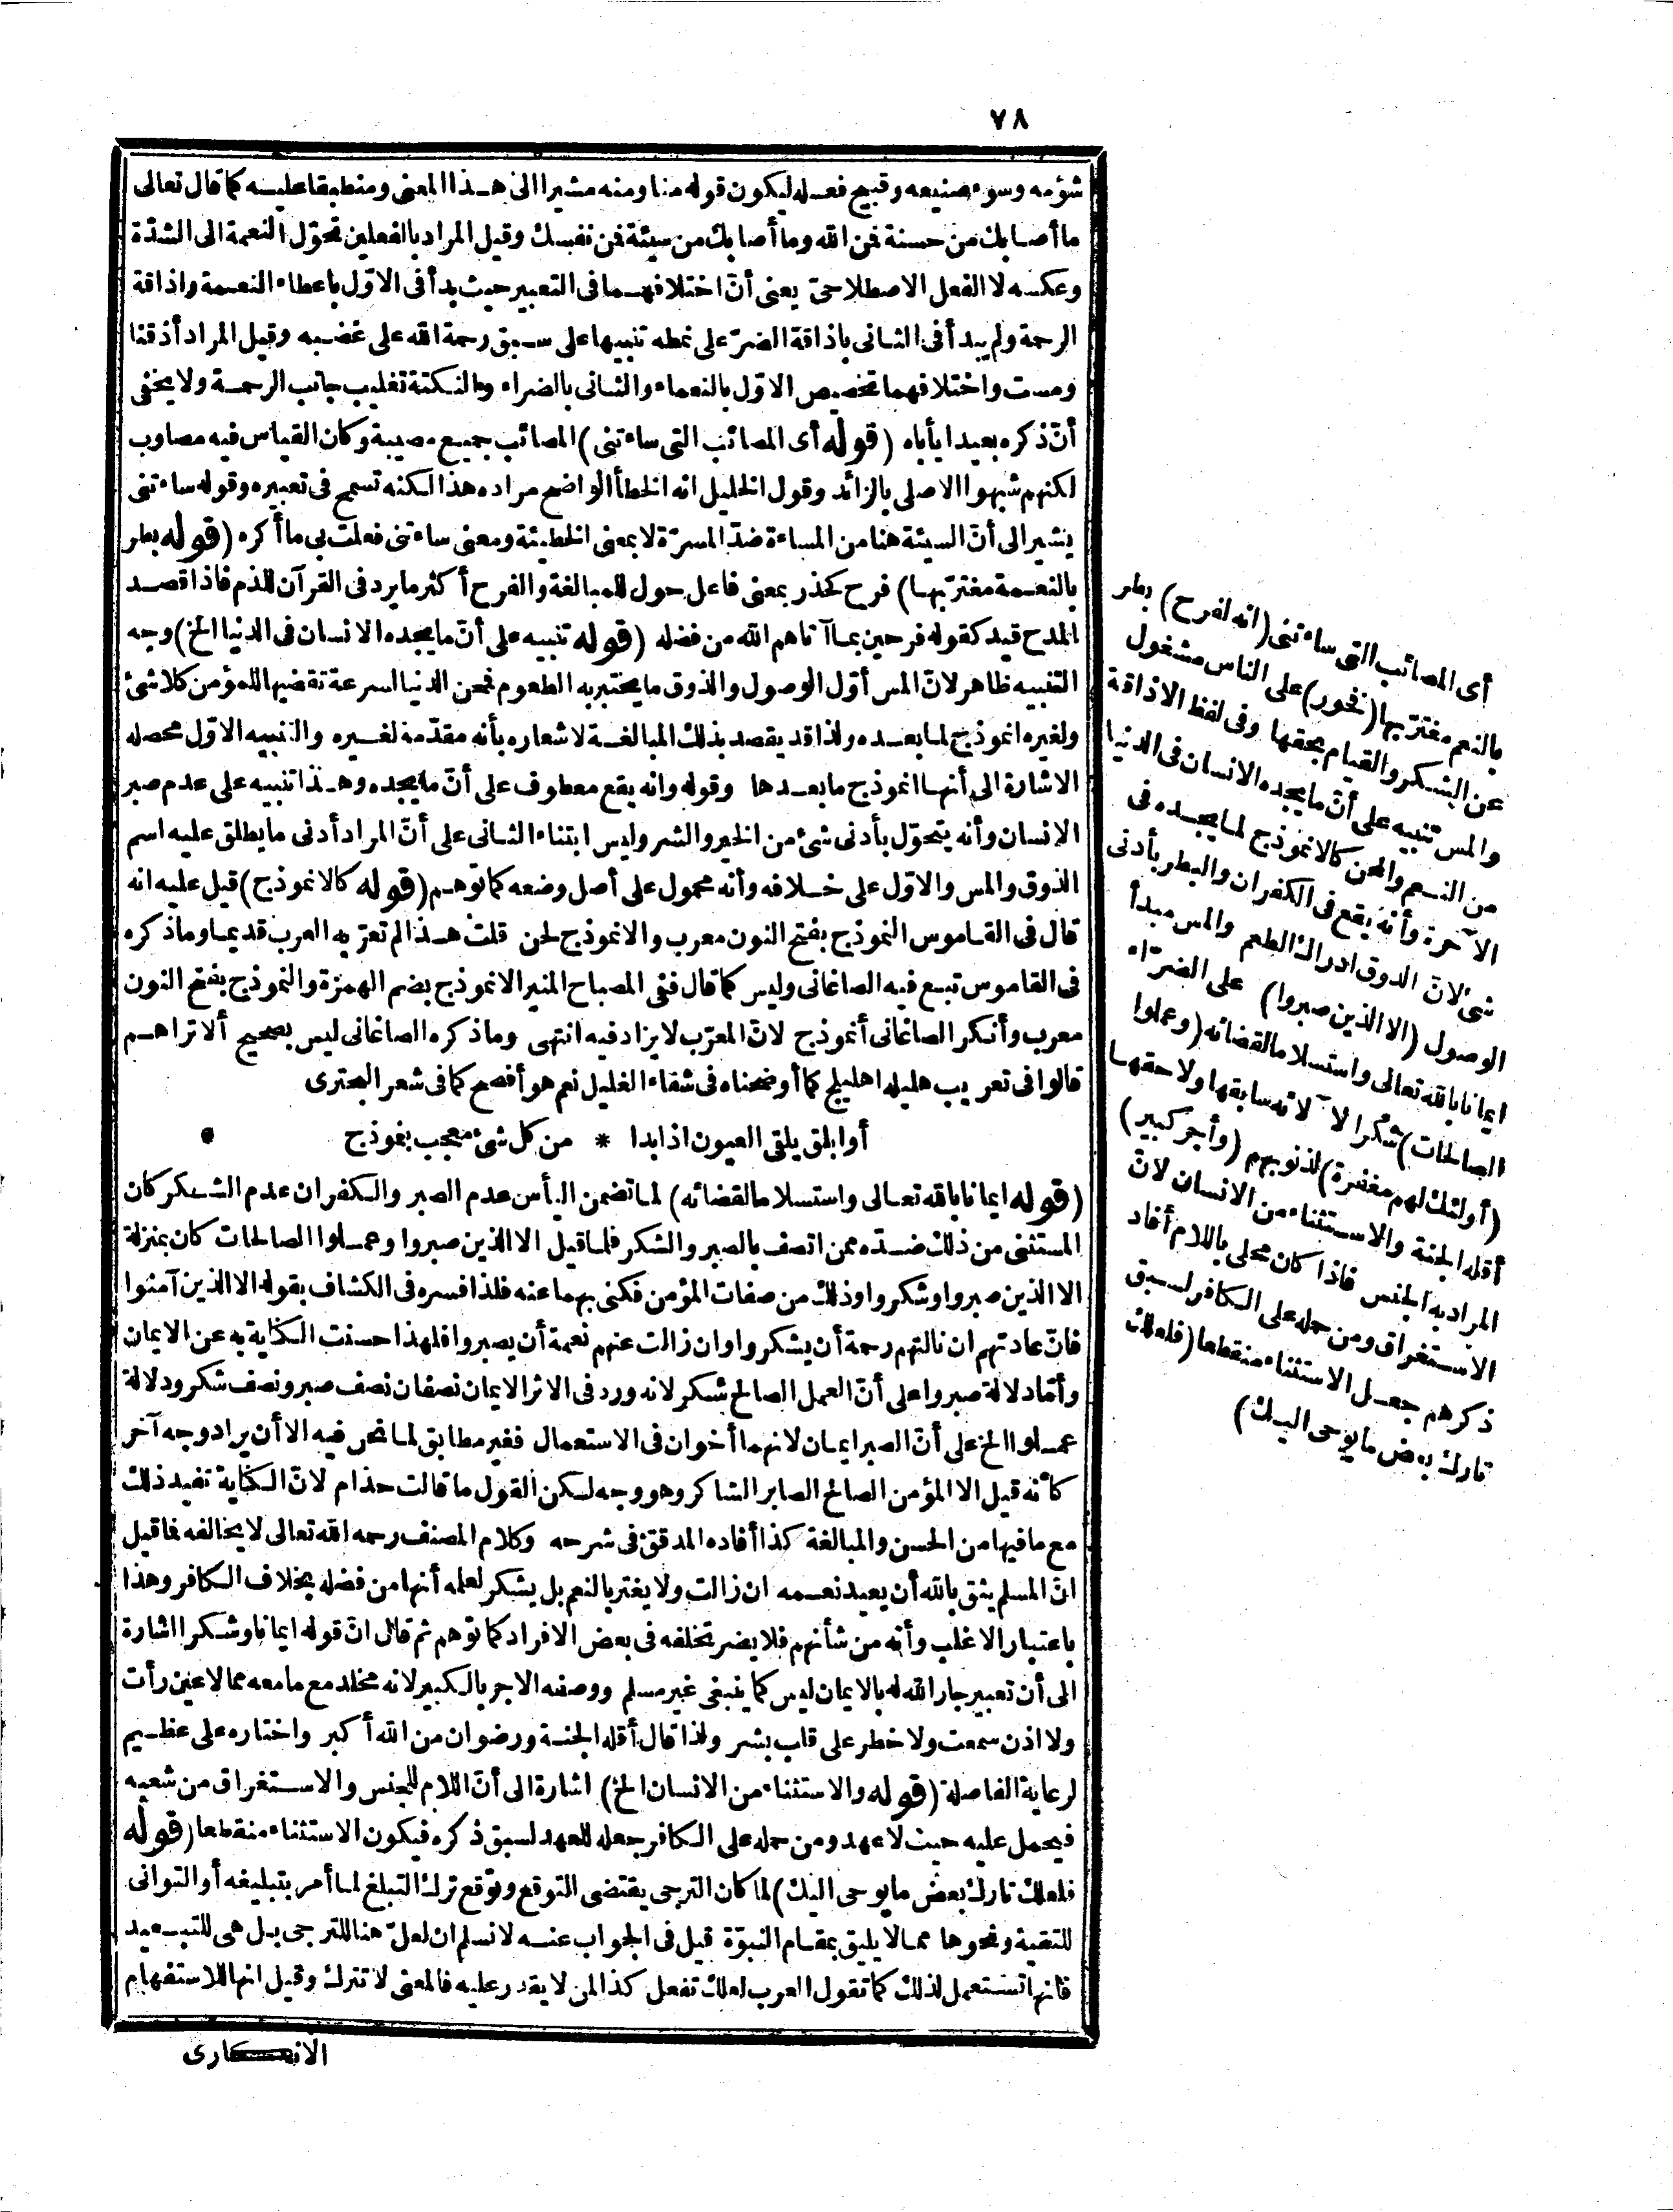 ٧٨
شؤمه وسوء صنيعه وقبيح فعله ليكون قوله منا ومنه مشيرا الى هذا المعنى ومنطبقا عليه كما قال تعالى
ما أصابك من حسنة فمن الله وما أصابك من سيئة فمن نفسك وقيل المراد بالفعلين تحوّل النعمة الى الشدّة
وعكسه لا الفعل الاصطلاحىّ يعنى أنّ اختلافهما فى التعبير حيث بدأ فى الاوّل باعطاء النعمة واذاقة
الرحمة ولم يبدأ فى الثانى باذاقة الضرّ على نمطه تنبيها على سبق رحمة الله على غضبه وقيل المراد أذقنا
ومست واختلافهما تخصيص الاوّل بالنعماء والثانى بالضراء والنكتة تغليب جانب الرحمة ولا يخفى
أنّ ذكره بعيدا يأباه (قوله أى المصائب التى ساءتنى) المصائب جميع مصيبة وكان القياس فيه مصاوب
لكنهم شبهوا الاصلى بالزائد وقول الخليل انه الخطأ الواضح مراده هذا لكنه تسمح فى تعبيره وقوله ساءتنى
يشير الى أنّ السيئة هنا من المساءة ضدّ المسرّة لا بمعنى الخطيئة ومعنى ساءتنى فعلت بى ما أكره (قوله بطر
بالنعمة مغترّ بها) فرح كحذر بمعنى فاعل حول للمبالغة والفرح أكثر ما يرد فى القرآن للذم فاذا قصد
المدح قيد كقوله فرحين بما آتاهم الله من فضله (قوله تنبيه على أنّ ما يجده الانسان فى الدنيا الخ) وجه
التنبيه ظاهر لانّ المس أوّل الوصول والذوق ما يختبر به الطعوم فمحن الدنيا لسرعة تقضيها للمؤمن كلا شئ
ولغيره انموذج لما بعده ولذا قد يقصد بذلك المبالغة لاشعاره بأنه مقدّمة لغيره والتنبيه الاوّل محصله
الاشارة الى أنها انموذج ما بعدها وقوله وانه يقع معطوف على أنّ ما يجده وهذا تنبيه على عدم صبر
الانسان وأنه يتحوّل بأدنى شئ من الخير والشر وليس ابتناء الثانى على أنّ المراد أدنى ما يطلق عليه اسم
الذوق والمس والاوّل على خلافه وأنه محمول على أصل وضعه كما توهم (قوله كالانموذج) قيل عليه انه
قال فى القاموس النموذج بفتح النون معرب والانموذج لحن قلت هذا لم تعرّ به العرب قديما وما ذكره
فى القاموس تبع فيه الصاغانى وليس كما قال ففى المصباح المنير الانموذج بضم الهمزة والنموذج بفتح النون
معرب وأنكر الصاغانى أنموذج لانّ المعرّب لا يزاد فيه انتهى وما ذكره الصاغانى ليس بصحيح ألا تراهم
قالوا فى تعريب هليله اهليلج كما أوضحناه فى شفاء الغليل نعم هو أفصح كما فى شعر البحترى
أو ابلق يلقى العيون اذا بدا * من كل شئ معجب بنموذج
(قوله ايمانا بالله تعالى واستسلاما لقضائه) لما تضمن اليأس عدم الصبر والكفران عدم الشكر كان
المستثنى من ذلك ضدّه ممن اتصف بالصبر والشكر فلما قيل الا الذين صبروا وعملوا الصالحات كان بمنزلة
الا الذين صبروا وشكروا وذلك من صفات المؤمن فكنى بهما عنه فلذا فسره فى الكشاف بقوله الا الذين آمنوا
فانّ عادتهم ان نالتهم رحمة أن يشكروا وان زالت عنهم نعمة أن يصبروا فلهذا حسنت الكناية به عن الايمان
وأما دلالة صبروا على أنّ العمل الصالح شكر لانه ورد فى الاثر الايمان نصفان نصف صبر ونصف شكر ودلالة
عملوا الخ على أنّ الصبر ايمان لانهما أخوان فى الاستعمال فغير مطابق لما نحن فيه الا أن يراد وجه آخر
كأنه قيل الا المؤمن الصالح الصابر الشاكر وهو وجه لكن القول ما قالت حذام لانّ الكناية تفيد ذلك
مع ما فيها من الحسن والمبالغة كذا أفاده المدقق فى شرحه وكلام المصنف رحمه الله تعالى لا يخالفه فما قيل
انّ المسلم يثق بالله أن يعيد نعمه ان زالت ولا يغتر بالنعم بل يشكر لعلمه أنها من فضله بخلاف الكافر وهذا
باعتبار الاغلب وأنه من شأنهم فلا يضر تخلفه فى بعض الافراد كما توهم ثم قال انّ قوله ايمانا وشكرا اشارة
الى أن تعبير جار الله له بالايمان ليس كما ينبغى غير مسلم ووصفه الاجر بالكبير لانه مخلد مع ما معه مما لا عين رأت
ولا اذن سمعت ولا خطر على قلب بشر ولذا قال أقله الجنة ورضوان من الله أكبر واختاره على عظيم
لرعاية الفاصلة (قوله والاستثناء من الانسان الخ) اشارة الى أنّ اللام للجنس والاستغراق من شعبه
فيحمل عليه حيث لا عهد ومن حمله على الكافر جعله للعهد لسبق ذكره فيكون الاستثناء منقطعا (قوله
فلعلك تارك بعض ما يوحى اليك) لما كان الترجى يقتضى التوقع وتوقع ترك التبليغ لما أمر بتبليغه أو التوانى
للتقية ونحوها مما لا يليق بمقام النبوّة قيل فى الجواب عنه لا نسلم ان لعلّ هنا للترجى بل هى للتبعيد
فانها تستعمل لذلك كما تقول العرب لعلك تفعل كذا لمن لا يقدر عليه فالمعنى لا تترك وقيل انها للاستفهام
الانكارى
أى المصائب التى ساءتنى (انه لفرح) بطر
بالنعم مغترّ بها (فخور) على الناس مشغول
عن الشكر والقيام بحقها وفى لفظ الاذاقة
والمس تنبيه على أنّ ما يجده الانسان فى الدنيا
من النعم والمحن كالانموذج لما يجده فى
الآخرة وأنه يقع فى الكفران والبطر بأدنى
شئ لانّ الذوق ادراك الطعم والمس مبدأ
الوصول (الا الذين صبروا) على الضرّاء
ايمانا بالله تعالى واستسلاما لقضائه (وعملوا
الصالحات) شكرا لآلائه سابقها ولاحقها
(أولئك لهم مغفرة) لذنوبهم (وأجر كبير)
أقله الجنة والاستثناء من الانسان لانّ
المراد به الجنس فاذا كان محلى باللام أفاد
الاستغراق ومن حمله على الكافر لسبق
ذكرهم جعل الاستثناء منقطعا (فلعلك
تارك بعض ما يوحى اليك)